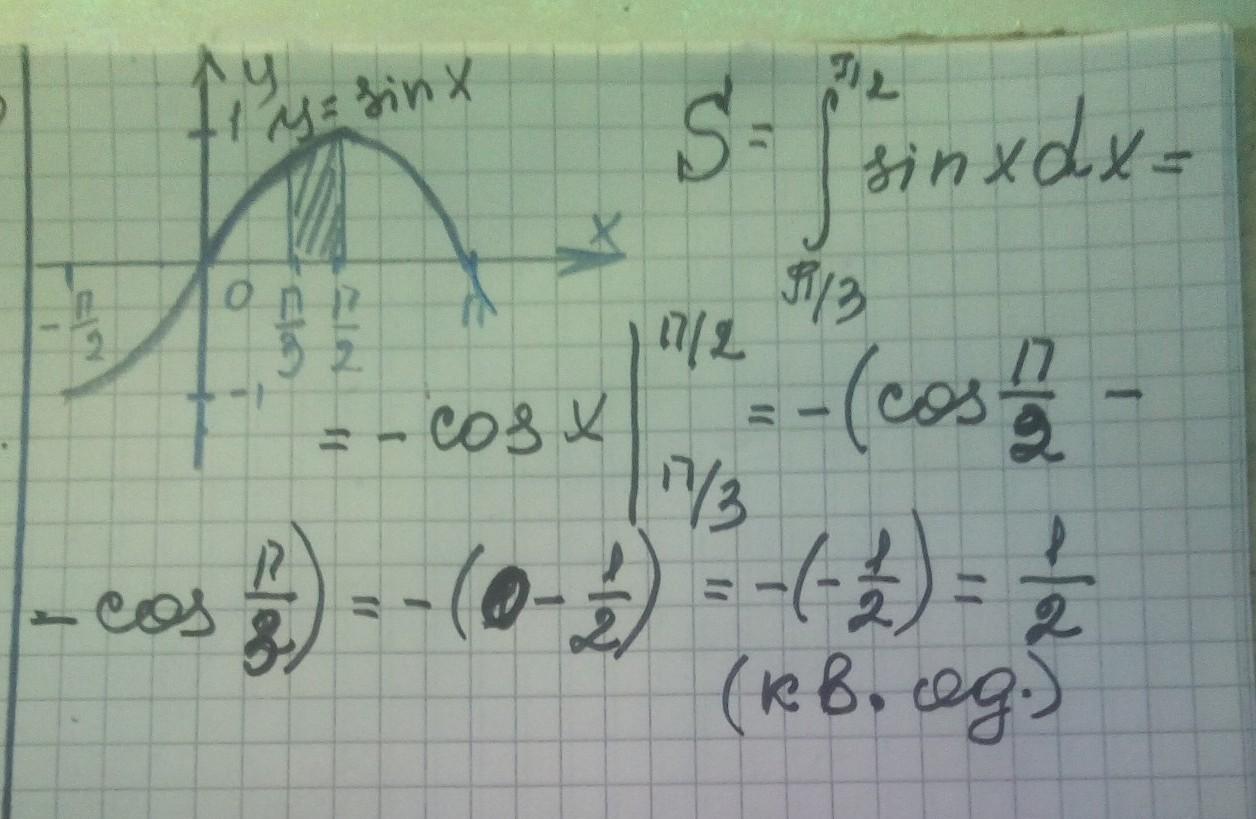 y
1 y = sin x
x
-π/2 0 π/3 π/2 π
-1
S = ∫_{π/3}^{π/2} sin x dx =
= - cos x |_{π/3}^{π/2} = -(cos π/2 -
- cos π/3) = -(0 - 1/2) = -(-1/2) = 1/2
(кв. ед.)